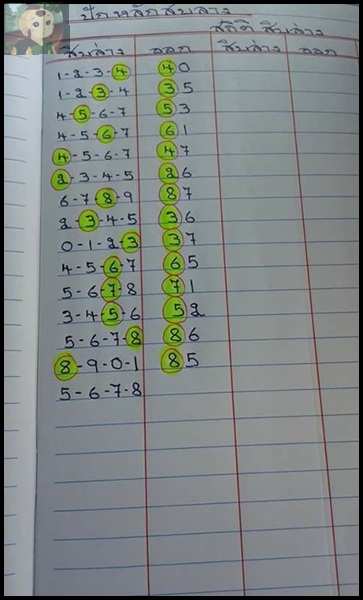 ปักหลักสิบล่าง
สถิติ สิบล่าง
สิบล่าง ออก สิบล่าง ออก
1-2-3-4 40
1-2-3-4 35
4-5-6-7 53
4-5-6-7 61
4-5-6-7 47
2-3-4-5 26
6-7-8-9 87
2-3-4-5 36
0-1-2-3 37
4-5-6-7 65
5-6-7-8 71
3-4-5-6 52
5-6-7-8 86
8-9-0-1 85
5-6-7-8